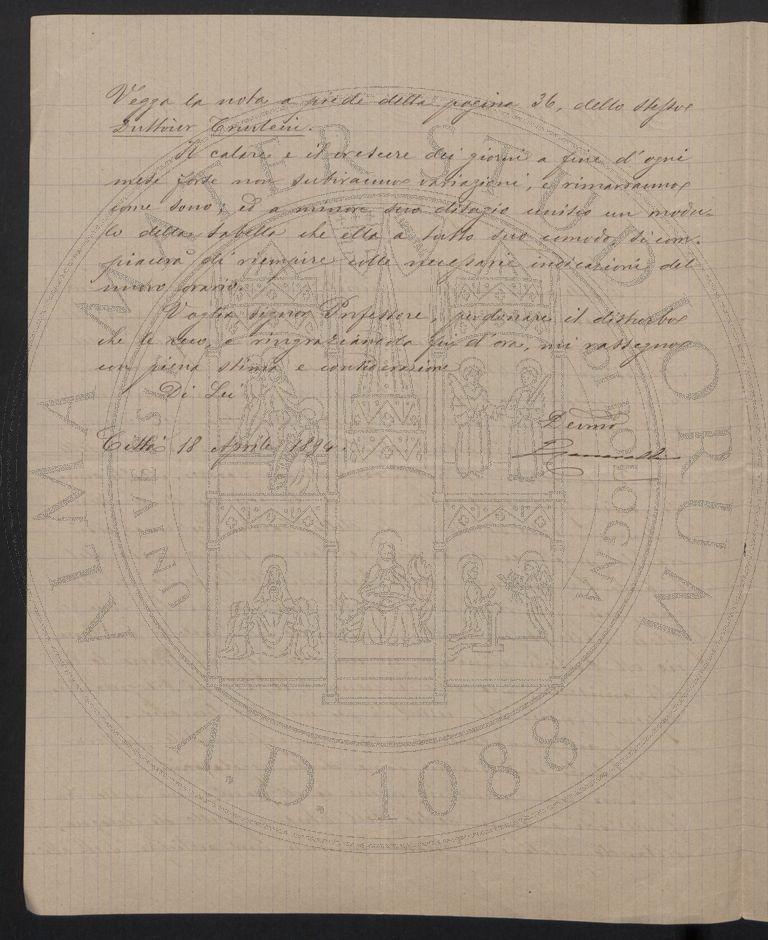 Vegga la nota a piede della pagina 36, dello stesso
Il calare e il crescere dei giorni a fine d'ogni
mese forse non subiranno variazioni, e rimarranno
come sono; ed a minore suo disagio unisco un modu-
lo della tabella che ella a tutto suo comodo, si com-
piacerà di riempire colle necessarie indicazioni del
nuovo orario.
Voglia signor Professore, perdonare il disturbo
che le reco, e ringraziandola fin d'ora, mi rassegno
con piena stima e considerazione
Di Lei
Devmo
Città 18 Aprile 1894.
ALMA MATER STUDIORUM
UNIVERSITÀ DI BOLOGNA
A.D. 1088